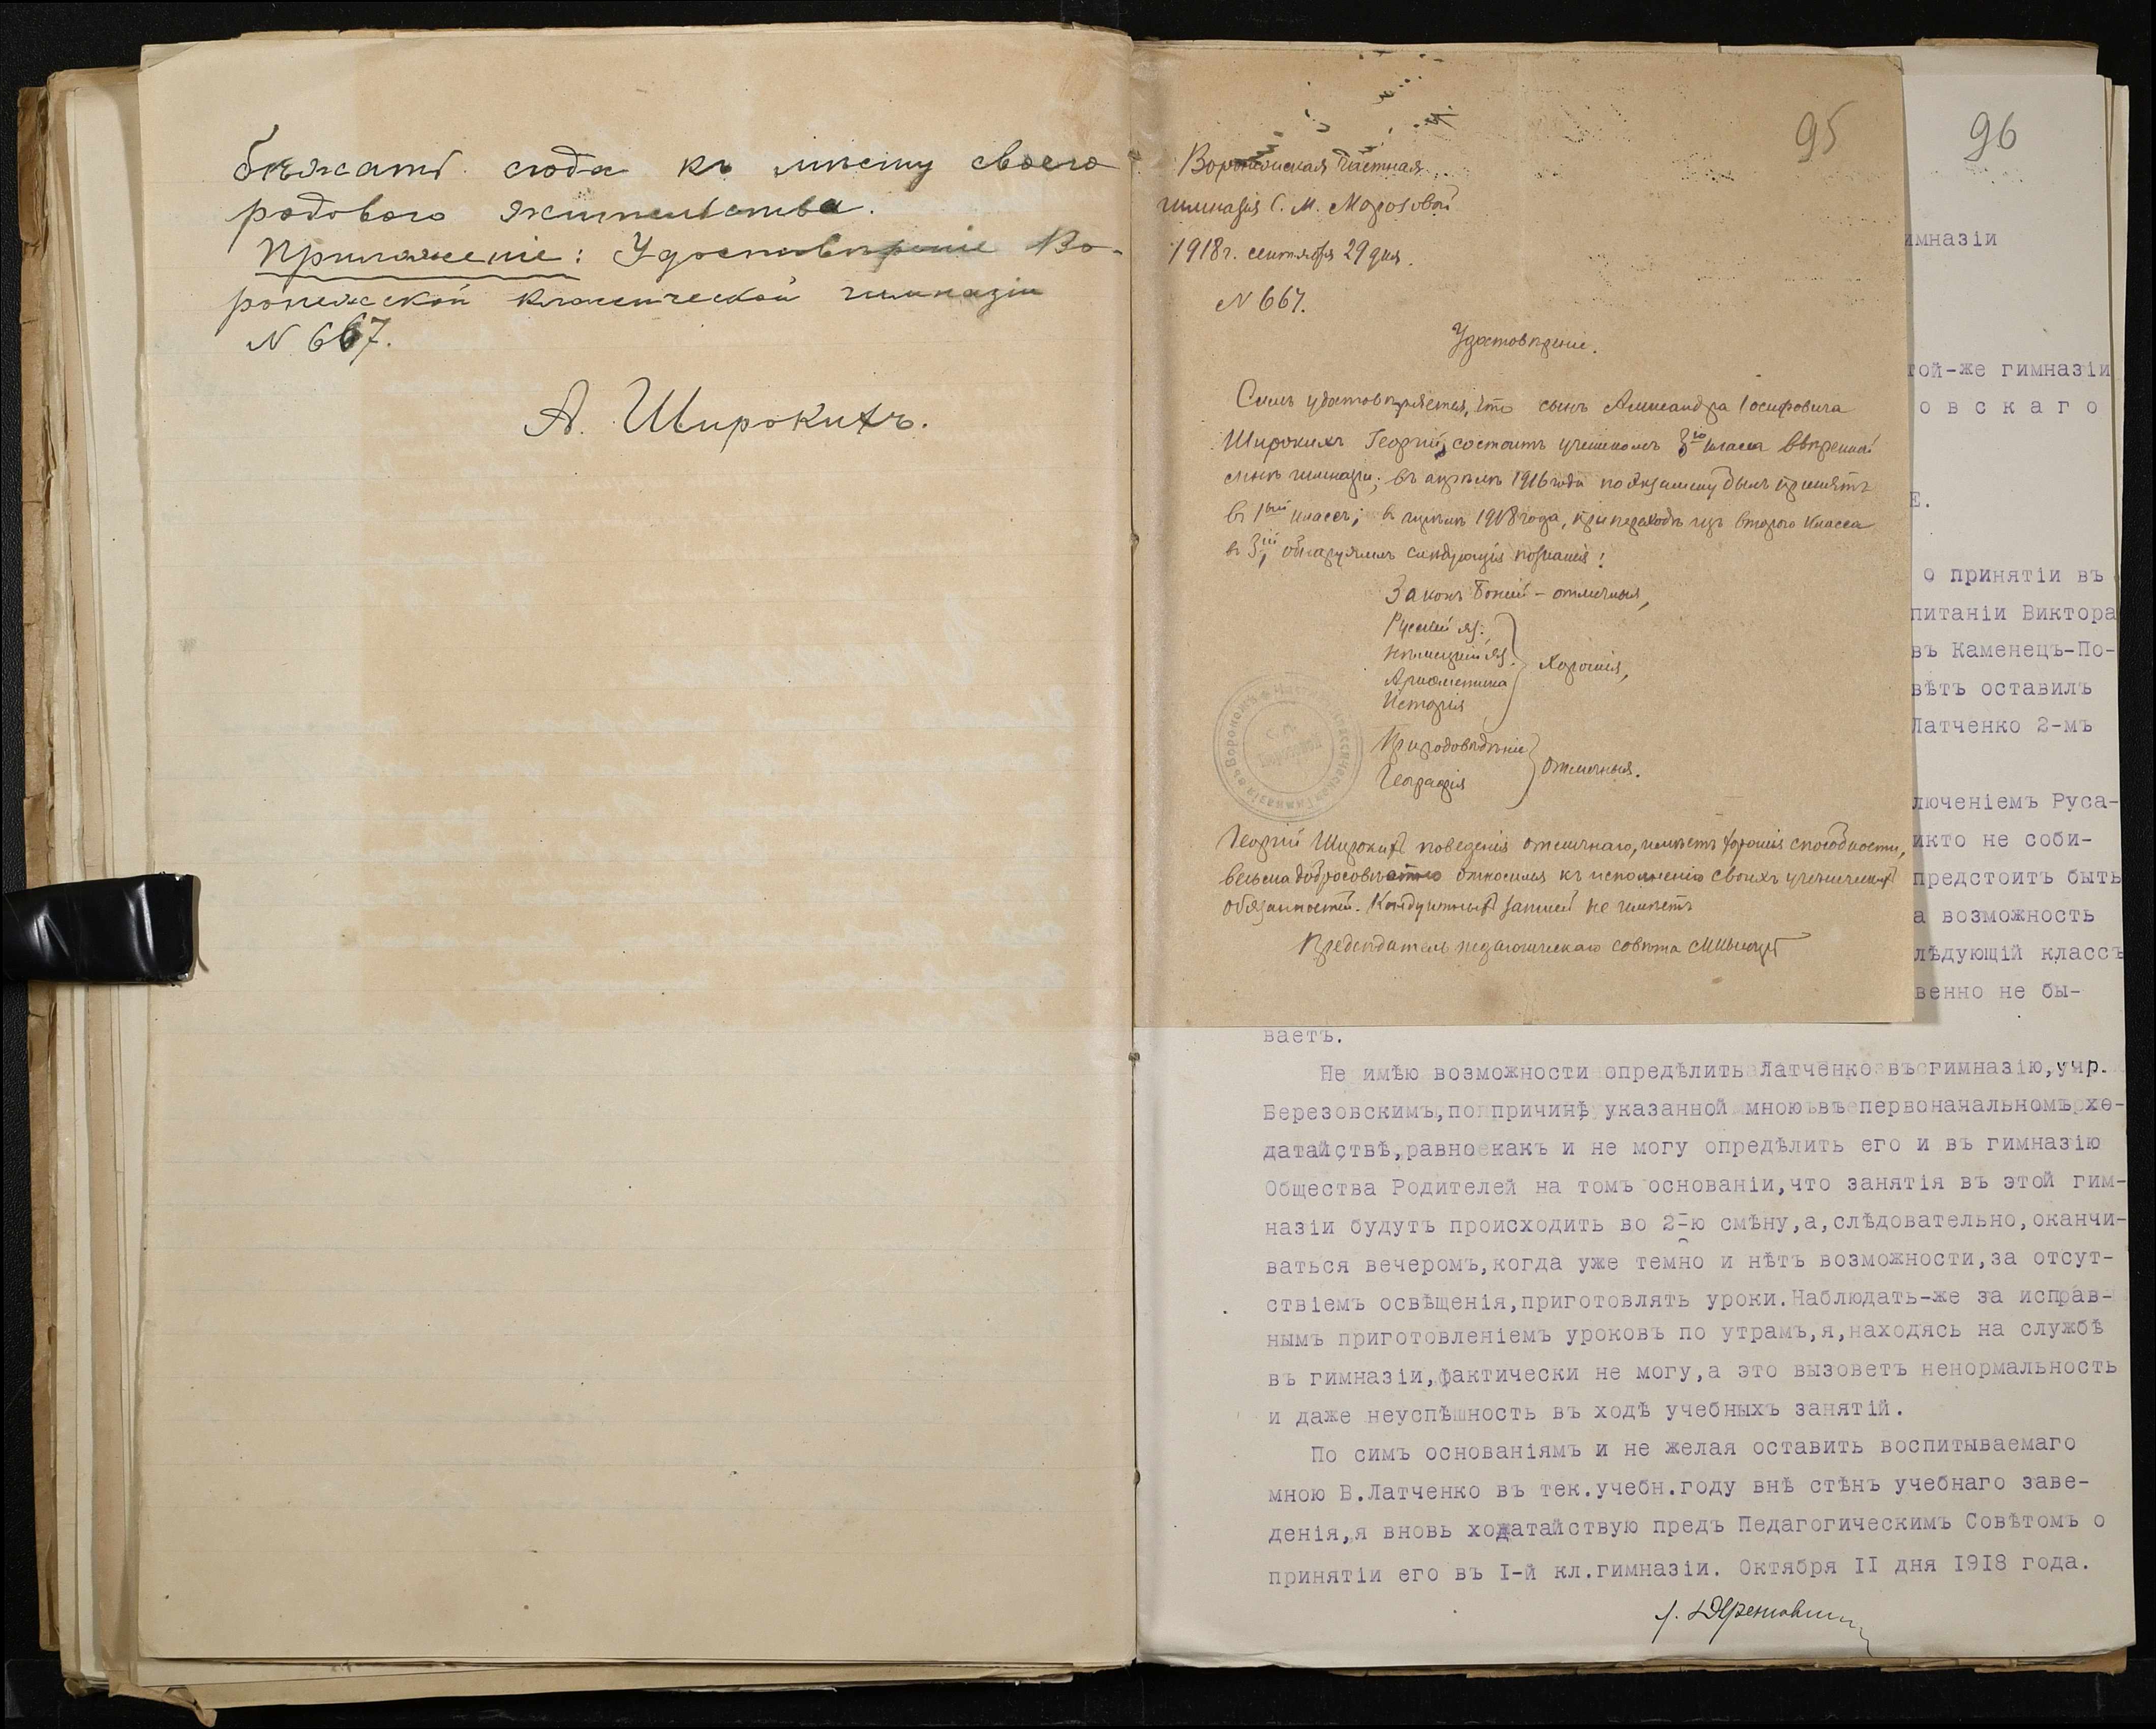 бѣжать сюда къ мѣсту своего
родового жительства.
Приложеніе: Удостовѣреніе Во-
ронежской классической гимназіи
N 667.
А. Широкихъ.
95
Воронежская частная
гимназія С. М. Морозовой
1918 г. сентября 29 дня.
N 667.
Удостовѣреніе.
Симъ удостовѣряется, что сынъ Александра Іосифовича
Широкихъ Георгій, состоитъ ученикомъ 3го класса ввѣренной
мнѣ гимназіи; въ апрѣлѣ 1916 года по экзамену былъ принятъ
въ 1ый классъ; въ 1918 года, при переходѣ изъ второго класса
въ 3ій, обнаружилъ слѣдующія познанія:
Законъ Божій – отличныя,
Русскій яз.
Нѣмецкій яз.
Ариѳметика
Исторія
Хорошія,
Природовѣдѣніе
Географія
отличныя.
Георгій Широкихъ поведенія отличнаго, имѣетъ хорошія способности,
весьма добросовѣстно относился къ исполненію своихъ ученическихъ
обязанностей. Кондуитныхъ записей не имѣетъ
Предсѣдатель педагогическаго совѣта
96
имназіи
той-же гимназіи
овскаго
Е.
о принятіи въ
питаніи Виктора
въ Каменецъ-По-
вѣтъ оставилъ
Латченко 2-мъ
люченіемъ Руса-
икто не соби-
предстоитъ быть
а возможность
лѣдующій классъ
венно не бы-
ваетъ.
Не имѣю возможности опредѣлить Латченко въ гимназію,учр.
Березовскимъ,по причинѣ указанной мною въ первоначальномъ хо-
датайствѣ,равно какъ и не могу опредѣлить его и въ гимназію
Общества Родителей на томъ основаніи,что занятія въ этой гим-
назіи будутъ происходить во 2-ю смѣну,а,слѣдовательно,оканчи-
ваться вечеромъ,когда уже темно и нѣтъ возможности,за отсут-
ствіемъ освѣщенія,приготовлять уроки.Наблюдать-же за исправ-
нымъ приготовленіемъ уроковъ по утрамъ,я,находясь на службѣ
въ гимназіи,фактически не могу,а это вызоветъ ненормальность
и даже неуспѣшность въ ходѣ учебныхъ занятій.
По симъ основаніямъ и не желая оставить воспитываемаго
мною В.Латченко въ тек.учебн.году внѣ стѣнъ учебнаго заве-
денія,я вновь ходатайствую предъ Педагогическимъ Совѣтомъ о
принятіи его въ I-й кл.гимназіи. Октября II дня I9I8 года.